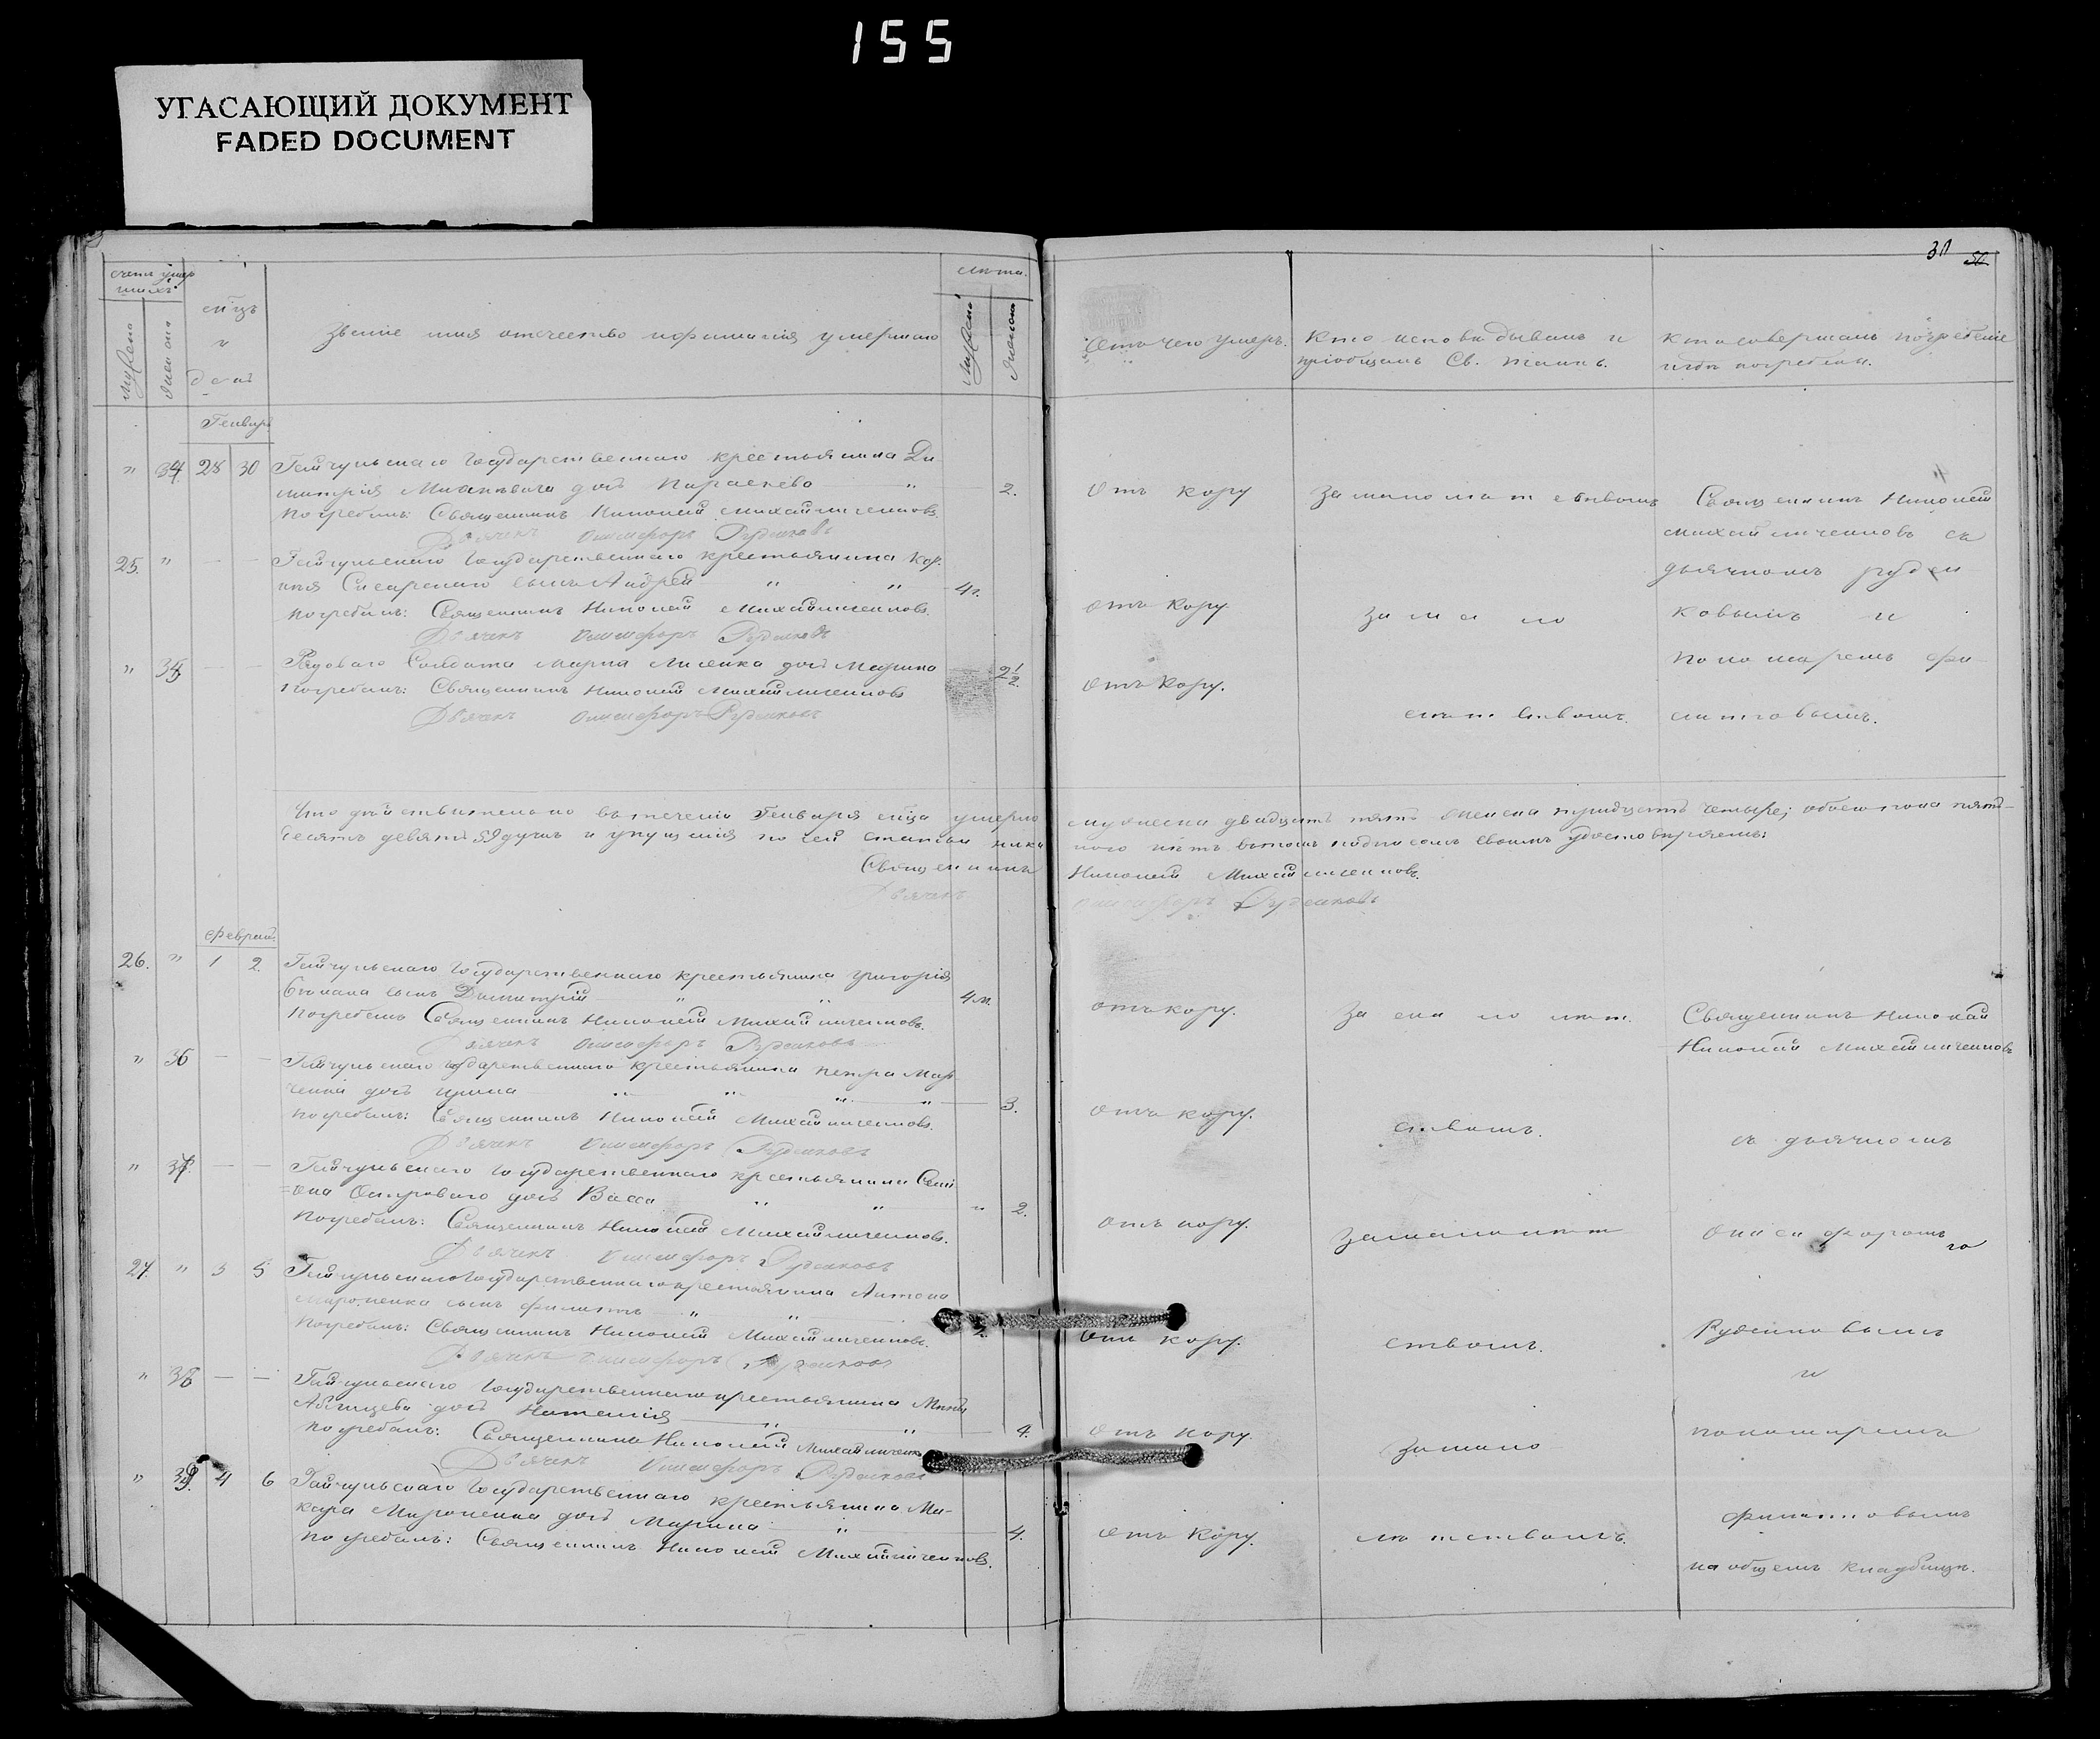 155
УГАСАЮЩИЙ ДОКУМЕНТ
FADED DOCUMENT
31 50
счетъ умер
шихъ
мужеска
женска
м̃ца
и
дена
званіе имя отчество и фамилія умершаго
лета.
мужеска
женска
Отъ чего умеръ.
Кто исповѣдывалъ и
пріобщалъ Св. таинъ.
Кто совершалъ погребеніе
и гдѣ погребены.
Генваръ
" 34 28 30 Гайчульскаго Государственнаго крестьянина Ди
митрія дочь Параскева " 2.
погребалъ: Священникъ Николай Михайличенковъ
Дьячекъ Онисифоръ Руденковъ
Отъ кору
За малолетствомъ
Священникъ Николай
Михайличенковъ съ
дьячкомъ Руден
ковымъ и
пономаремъ Фи
липовымъ.
25. " — — Гайчульскаго Государственнаго крестьянина Кор.
нія сынъ Андрей " " 4 г.
погребалъ: Священникъ Николай Михайличенковъ.
Дьячекъ Онисифоръ Руденковъ
отъ кору.
за мало
" 35 — — Рядоваго Солдата Марка Лисенка дочь Марина 2 1/2
погребалъ: Священникъ Николай Михайличенковъ
Дьячекъ Онисифоръ Руденковъ
отъ кору.
летствомъ.
Что действительно въ теченіи Генваря м̃ца умерло мужеска двадцать пять женска тридцать четыре; обоего пола пять-
десятъ девять 59 душъ и упущенія по сей статьи ника кого нетъ въ томъ подписомъ своимъ удостоверяемъ:
Священникъ Николай Михайличенковъ.
Дьячекъ Онисифоръ Руденковъ
Феврал.
26. " 1 2. Гайчульскаго Государственнаго крестьянина Григорія
сынъ Димитрій " " 4 м.
Погребалъ Священникъ Николай Михайличенковъ.
Дьячекъ Онисифоръ Руденковъ
отъ кору.
За мало лет.
Священникъ Николай
Николай Михайличенковъ
" 36 — — Гайчульскаго Государственнаго крестьянина Петра Мар
ченка дочь " " " " 3.
погребалъ: Священникъ Николай Михайличенковъ.
Дьячекъ Онисифоръ Руденковъ
отъ кору.
ствомъ.
съ дьячкомъ
" 37 — — Гайчульскаго Государственнаго крестьянина Сем
=она дочь Васса " " " 2.
Погребалъ: Священникъ Николай Михайличенковъ.
Дьячекъ Онисифоръ Руденковъ
отъ кору.
За малолет
Онисифоромъ
27. " 3 5 Гайчульскаго Государственнаго крестьянина Антона
Мироненка сынъ Филиппъ " " 2.
Погребалъ: Священникъ Николай Михайличенковъ.
Дьячекъ Онисифоръ Руденковъ
отъ кору.
ствомъ.
Руденковымъ
и
" 38 — — Гайчульскаго Государственнаго крестьянина
дочь Наталія " " 4.
погребалъ: Священникъ Николай Михайличенко
Дьячекъ Онисифоръ Руденковъ
отъ кору.
за мало
пономаремъ
" 39. 4 6 Гайчульскаго Государственнаго крестьянина Ма-
кара Мироненка дочь Марина " 4.
погребалъ: Священникъ Николай Михайличенковъ.
отъ кору.
летствомъ.
Филиповымъ
на общемъ кладбище.